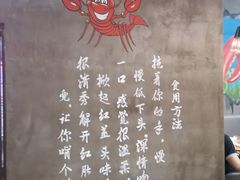 食用方法
挽着你的手，慢
慢低下头，深情吻
一口感觉很温柔，
掀起红盖头味
很清秀解开红肚
兜，让你嗍个